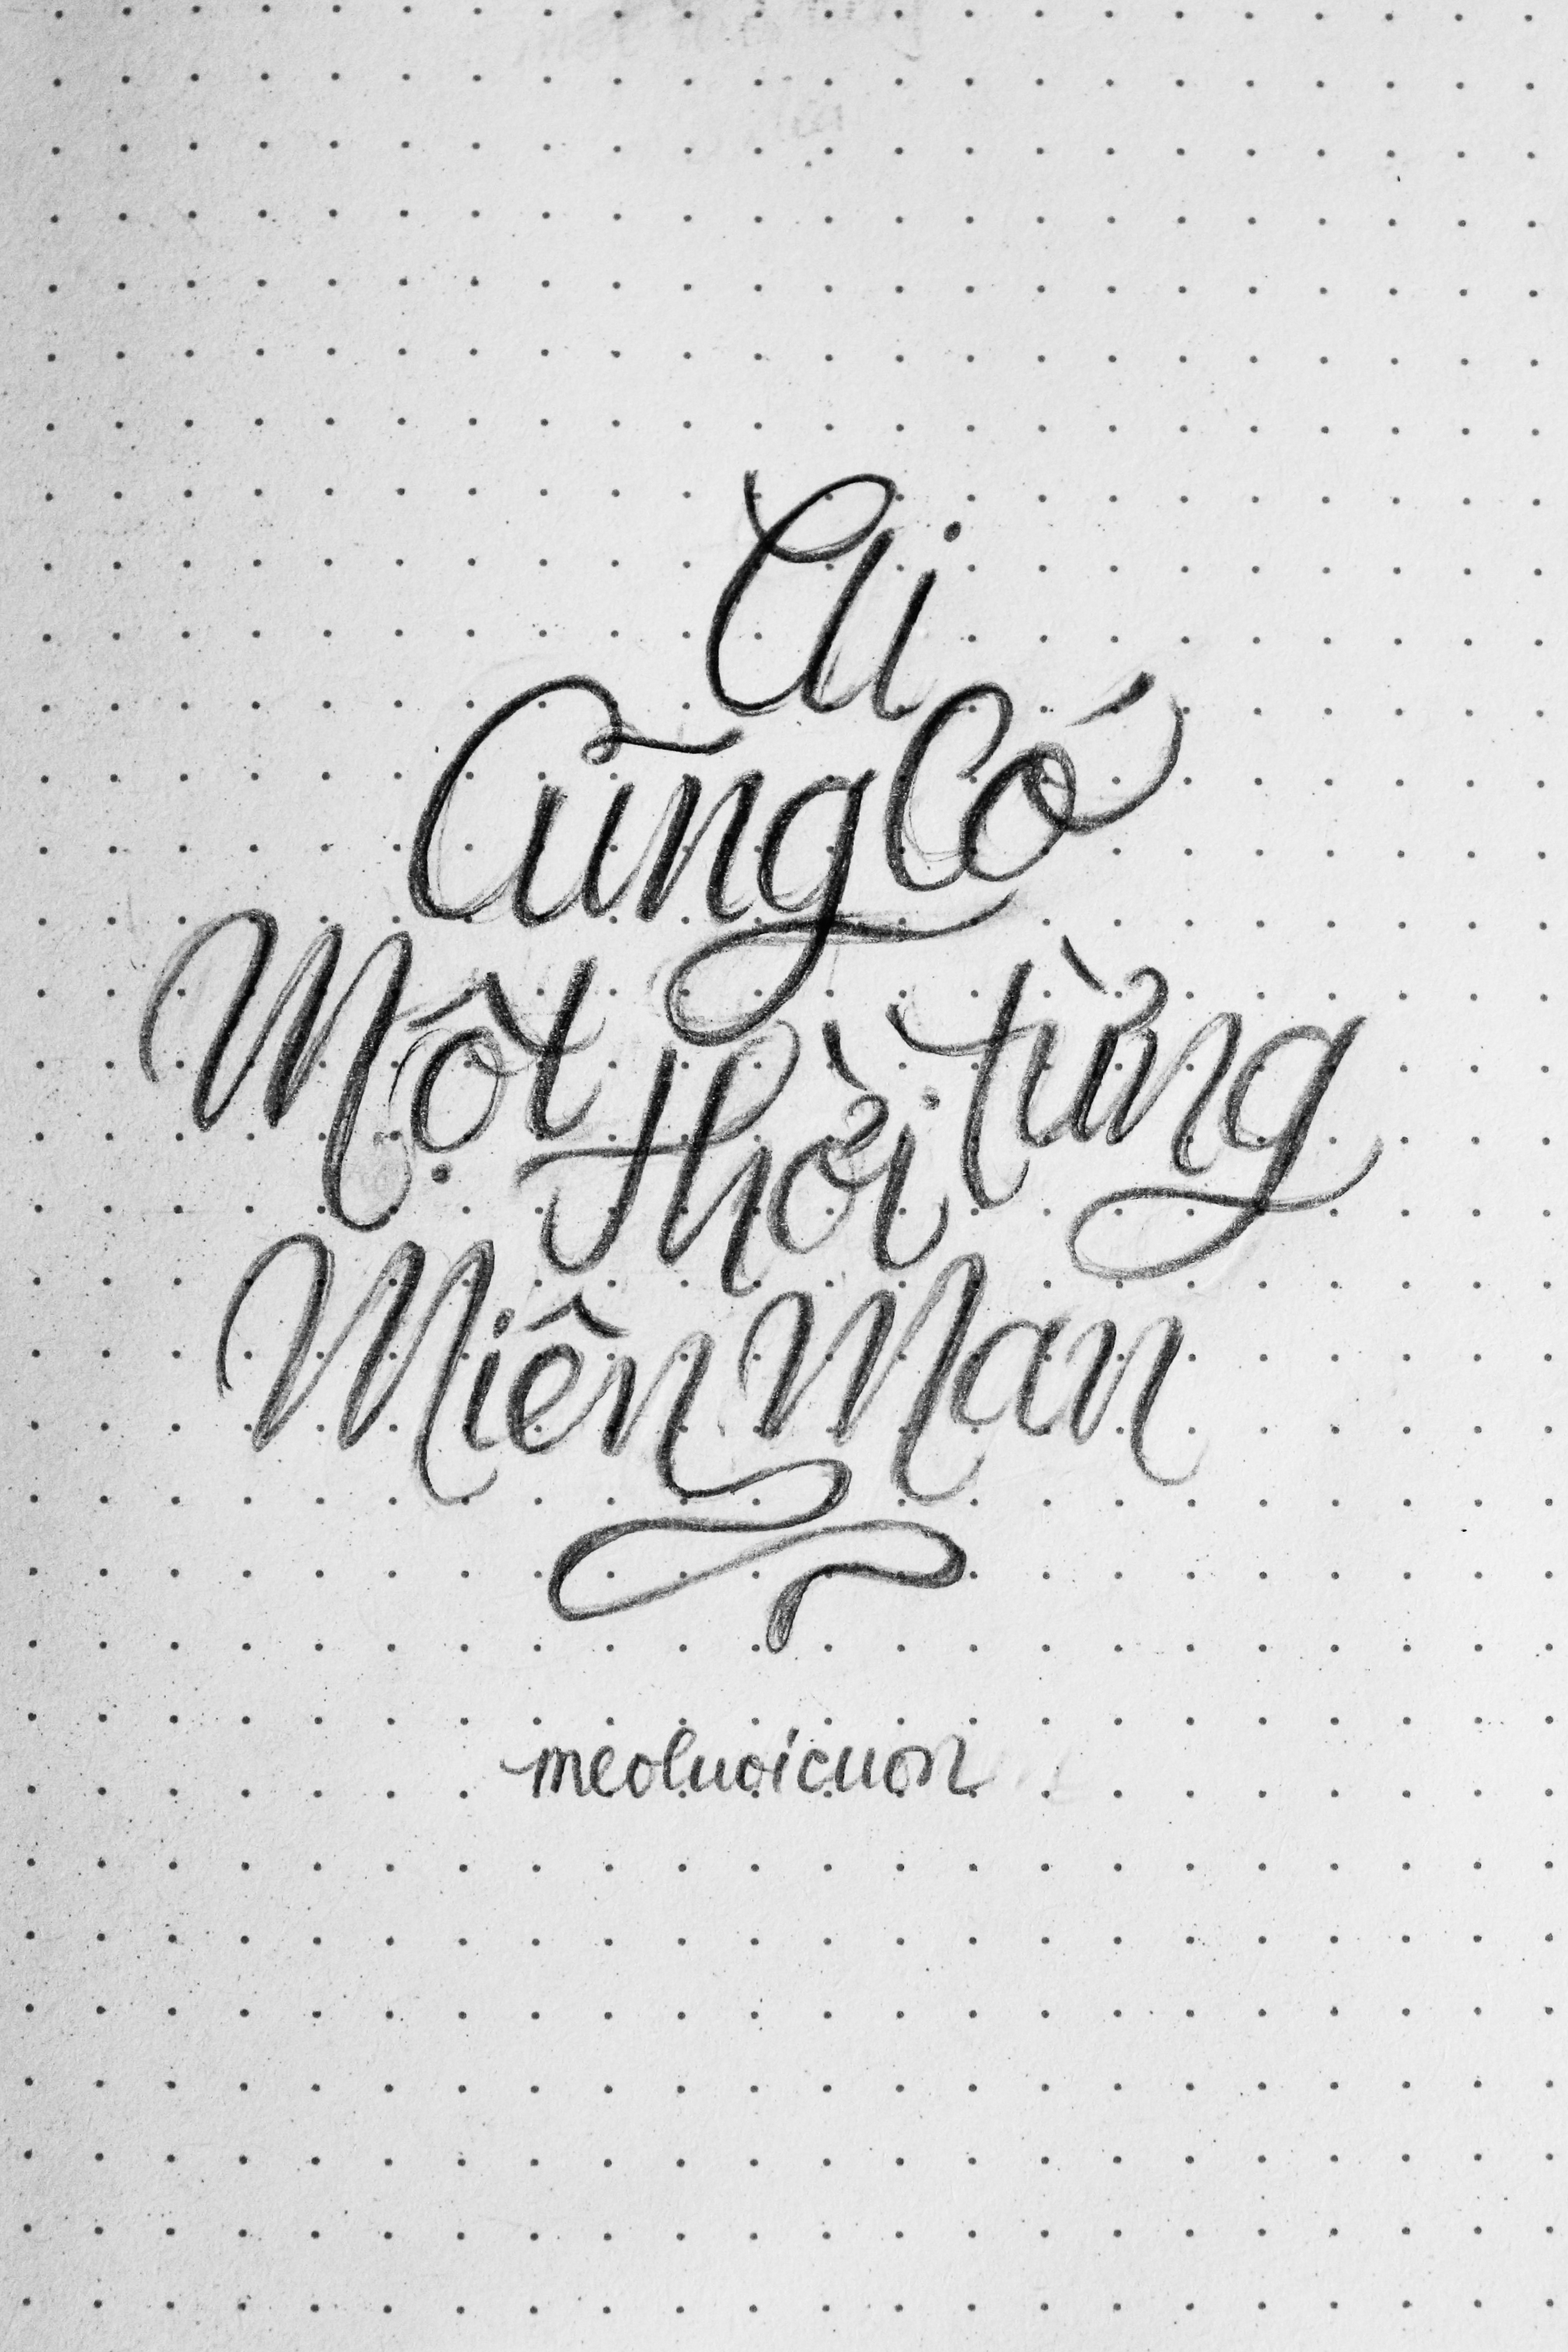 Ai
Cũng Có
Một thời từng
Miên Man
meoluoicuon